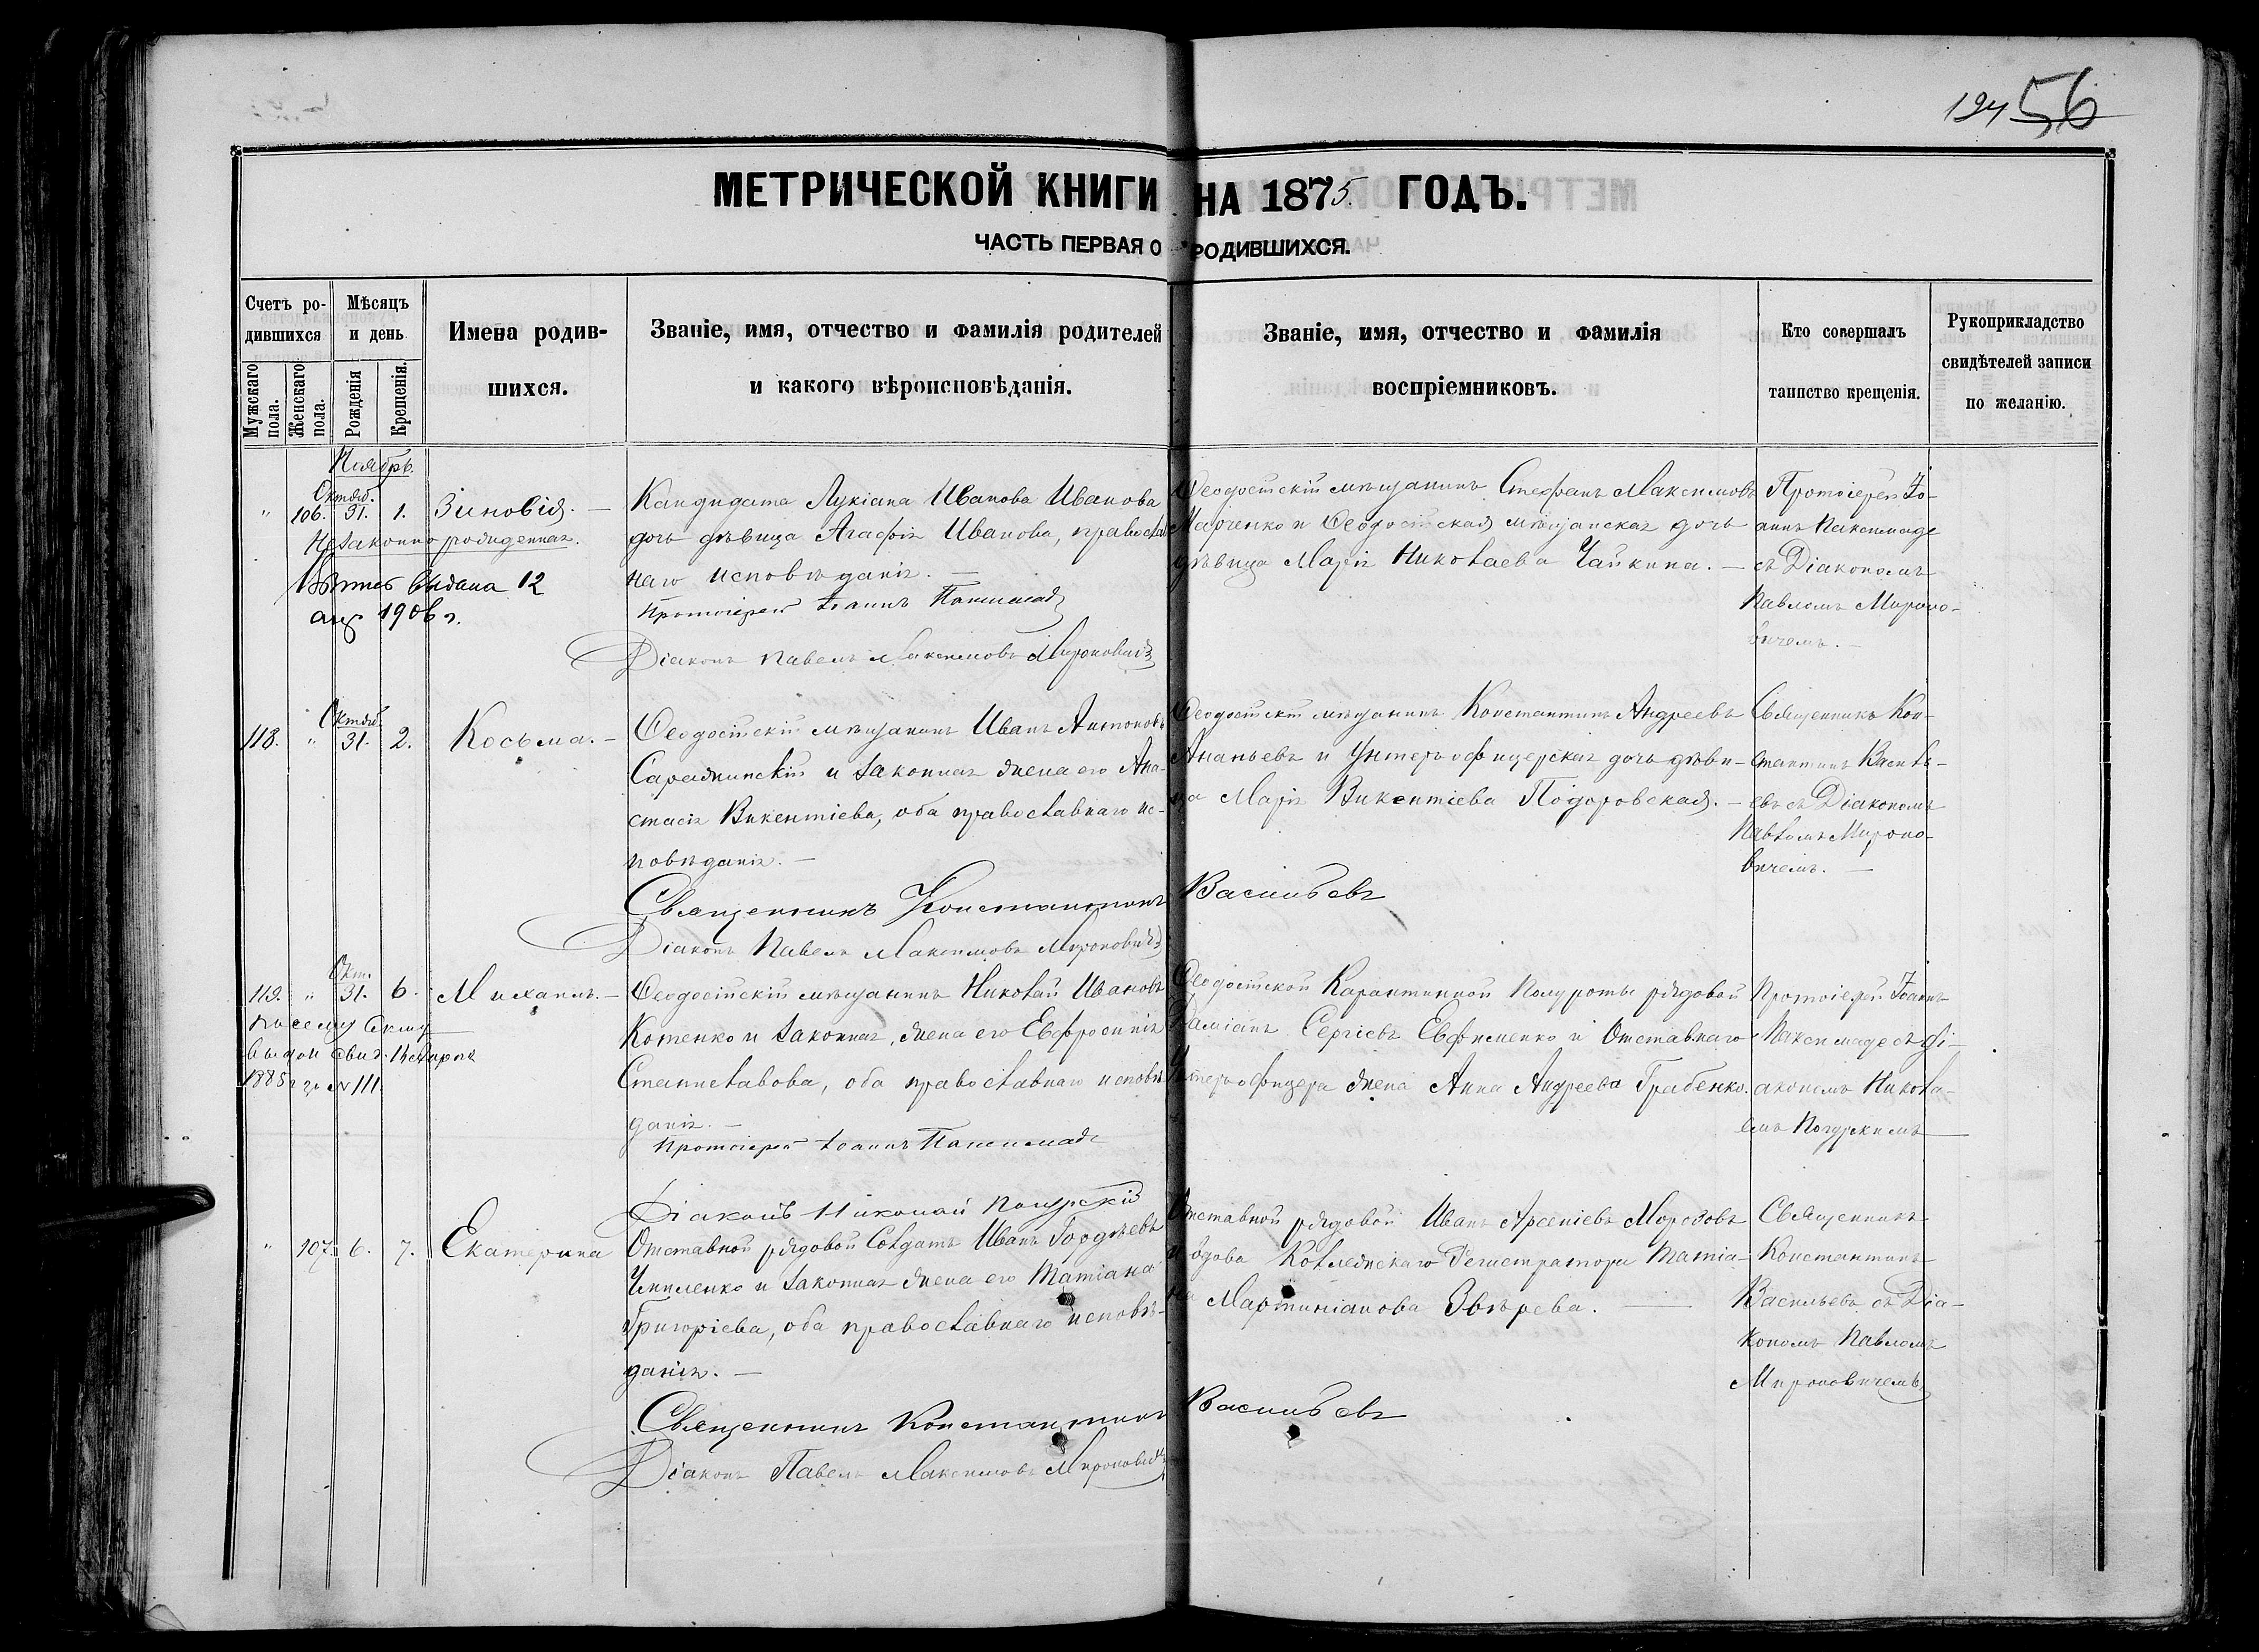 124 56
МЕТРИЧЕСКОЙ КНИГИ НА 1875 ГОДЪ.
ЧАСТЬ ПЕРВАЯ О РОДИВШИХСЯ.
Счетъ ро-
дившихся
Мужскаго пола.
Женскаго пола.
Мѣсяцъ
и день
Рожденія
Крещенія.
Имена родив-
шихся.
Званіе, имя, отчество и фамилія родителей
и какого вѣроисповѣданія.
Званіе, имя, отчество и фамилія
воспріемниковъ.
Кто совершалъ
таинство крещенія.
Рукоприкладство
свидѣтелей записи
по желанію.
Ноябрь.
" 106. Октяб. 31. 1. Зиновія. —
Незаконнорожденная.
выдана 12
1906 г.
Кандидата Лукіана Иванова Иванова
дочь дѣвица Агафія Иванова, православ
наго исповѣданія. —
Протоіерей Іоаннъ
Діаконъ Павелъ Максимовъ Мироновичъ
Ѳеодосійскій мѣщанинъ Стефанъ Максимовъ
Марченко и Ѳеодосійская мѣщанская дочь
дѣвица Марія Николаева Чайкина. —
Протоіерей Іо-
аннъ
съ Діакономъ
Павломъ Мироно-
вичемъ. —
118. " Октяб. 31. 2. Косьма. —
Ѳеодосійскій мѣщанинъ Иванъ Антоновъ
Саражинскій и законная жена его Ана-
стасія Викентіева, оба православнаго ис-
повѣданія. —
Священникъ Константинъ Васильевъ
Діаконъ Павелъ Максимовъ Мироновичъ
Ѳеодосійскій мѣщанинъ Константинъ Андреевъ
Ананьевъ и Унтеръ-офицерская дочь дѣви-
ца Марія Викентіева Подоровская. —
Священникъ Кон-
стантинъ Василь-
евъ съ Діакономъ
Павломъ Мироно-
вичемъ. —
119. " Окт. 31. 6. Михаилъ. —
По сему акту
выдан свид.
1885 г за № 111.
Ѳеодосійскій мѣщанинъ Николай Ивановъ
Котенко и законная жена его Евфросинія
Станиславова, оба православнаго исповѣ
данія. —
Протоіерей Іоаннъ
Діаконъ Николай Погурскій
Ѳеодосійской Карантинной Полуроты рядовой
Даміанъ Сергіевъ Евфименко и Отставнаго
Унтеръ-офицера жена Анна Андреева Грабенко.
Протоіерей Іоаннъ
съ Ді-
акономъ Никола-
емъ Погурскимъ
" 107. 6. 7. Екатерина
Отставной рядовой Солдатъ Иванъ Гордѣевъ
Чмиленко и законная жена его Татіана
Григоріева, оба православнаго исповѣ-
данія. —
Священникъ Константинъ Васильевъ
Діаконъ Павелъ Максимовъ Мироновичъ
Отставной рядовой Иванъ Арсеніевъ Морозовъ
и вдова Коллежскаго Регистратора Татіа-
на Мартиніанова Звѣрева. —
Священникъ
Константинъ
Васильевъ съ Діа-
кономъ Павломъ
Мироновичемъ